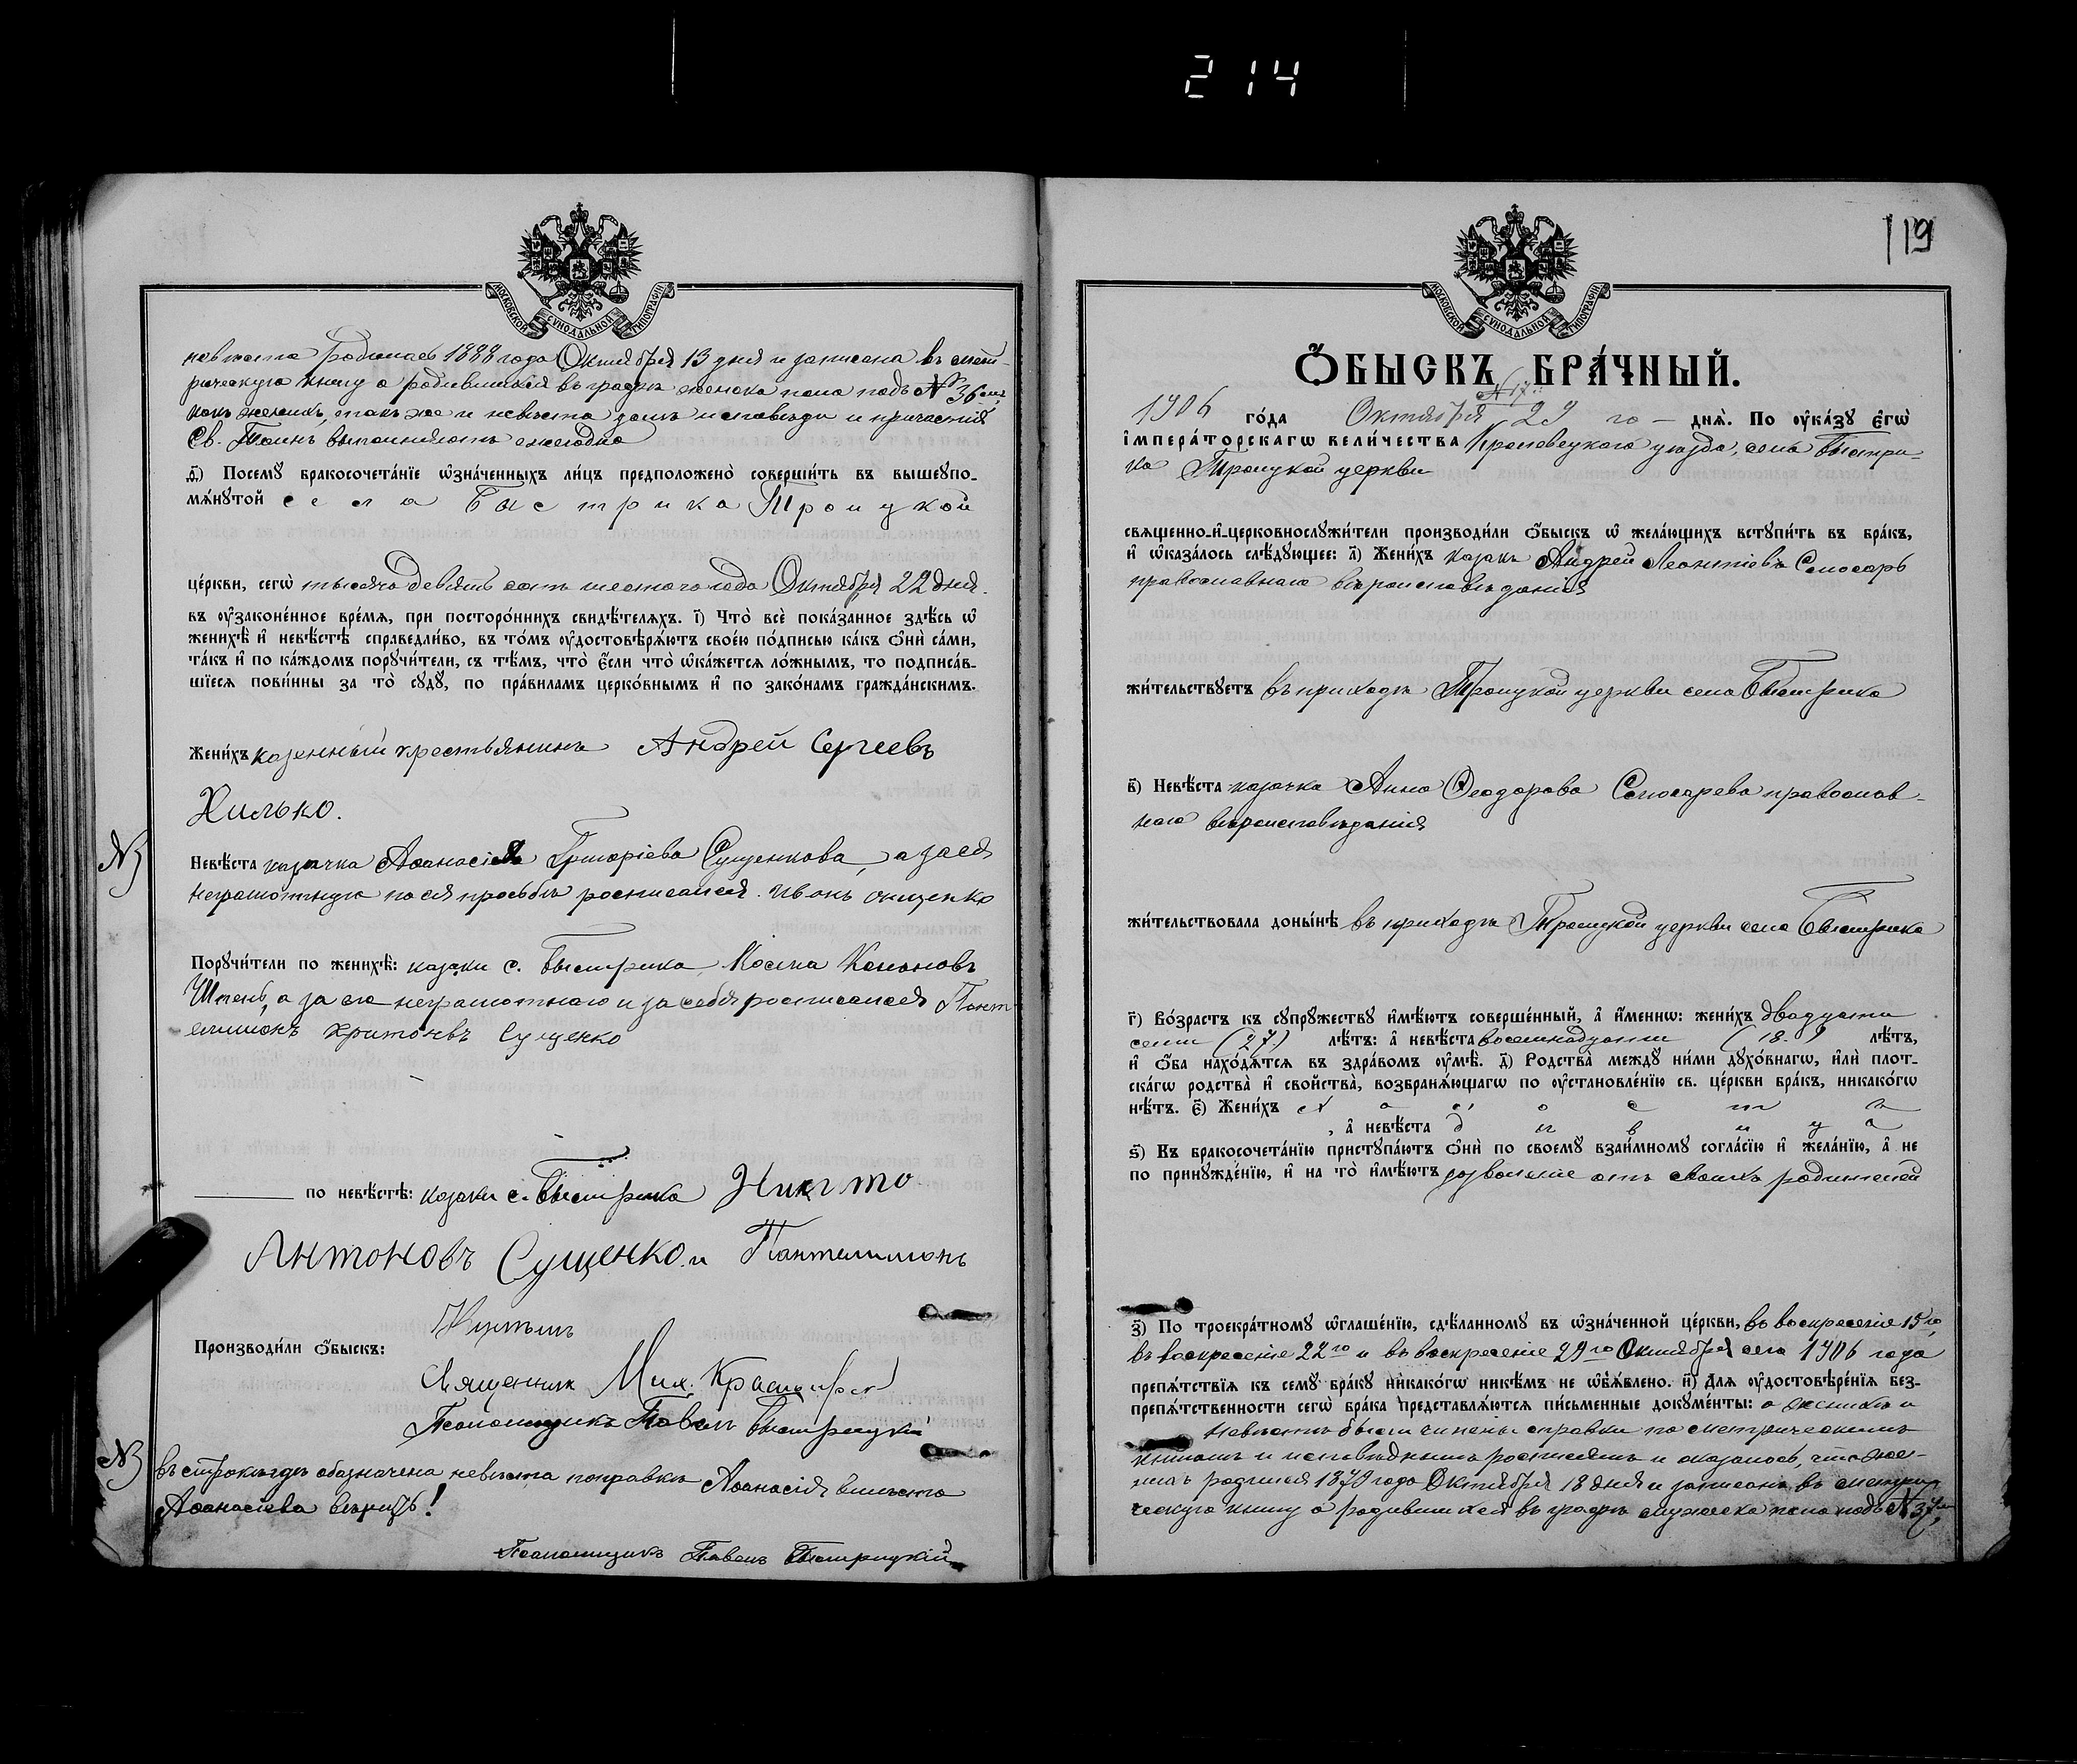 214
МОСКОВСКОЙ СѴНОДАЛЬНОЙ ТИПОГРАФІИ
невѣста родилась 1888 года Октября 13 дня и записана въ мет-
рическую книгу о родившихся въ графѣ женска пола подъ № 36мъ,
какъ женихъ, такъ же и невѣста долгъ исповѣди и причастія
Св. Таинъ выполняютъ ежегодно
д҃) Посемꙋ бракосочета́нїе ѡ҆зна́ченныхъ ли́цъ предположено̀ соверши́ть въ вышеупо-
мѧ́нꙋтой села Быстрика Троицкой
це́ркви, сегѡ̀ тысяча девятьсотъ шестого года Октября 22 дня.
въ ᲂу҆законе́нное вре́мѧ, при посторо́ннихъ свидѣ́телѧхъ. і҃) Что̀ всѐ пока́занное здѣ́сь ѡ҆
женихѣ̀ и҆ невѣ́стѣ справедли́во, въ то́мъ ᲂу҆достовѣрѧ́ютъ свое́ю по́дписью ка́къ ѻ҆нѝ са́ми,
та́къ и҆ по ка́ждомъ порꙋчи́тели, съ тѣ́мъ, что̀ є҆́сли что̀ ѡ҆ка́жетсѧ ло́жнымъ, то подписа́в-
шїесѧ пови́нны за то̀ сꙋдꙋ̀, по пра́виламъ церко́внымъ и҆ по зако́намъ гражда́нскимъ.
Жени́хъ казенный крестьянинъ Андрей Сергеевъ
Хилько.
№
Невѣ́ста казачка Аѳанасія Григоріева Сущенкова, а за ея
неграмотную по ея просьбѣ росписался. Иванъ
Порꙋчи́тели по женихѣ̀: казаки с. Быстрика Косма Кононовъ
Шпень, а за его неграмотнаго и за себя росписался Пант
елимонъ Харитоновъ Сущенко
по невѣ́стѣ: казаки с. Быстрика Никита
Антоновъ Сущенко. и Пантелимонъ
Производи́ли ѻ҆́быскъ:
Священник Мих.
Псаломщикъ Павелъ Быстрицкій
№
въ строкѣ гдѣ обозначена невѣста поправкѣ Аѳанасія вмѣсто
Аѳанасіева вѣрить!
Псаломщикъ Павелъ Быстрицкій
119
МОСКОВСКОЙ СѴНОДАЛЬНОЙ ТИПОГРАФІИ
Ѻ҆́БЫСКЪ БРА́ЧНЫЙ.
№ 17.
1906 го́да Октября 29 го — днѧ̀. По ᲂу҆ка́зꙋ є҆гѡ̀
і҆мпера́торскагѡ вели́чества Кролевецкого уѣзда, села Быстри-
ка Троицкой церкви
свѧщенно-и҆-церковнослꙋжи́тели производи́ли ѻ҆́быскъ ѡ҆ жела́ющихъ встꙋпи́ть въ бра́къ,
и҆ ѡ҆каза́лось слѣ́дꙋющее: а҃) Жени́хъ казакъ Андрей Леонтіевъ Слюсарь
православнаго вѣроисповѣданія
жи́тельствꙋетъ въ приходѣ Троицкой церкви села Быстрика
в҃) Невѣ́ста казачка Анна Ѳеодорова Слюсарева православ-
наго вѣроисповѣданія
жи́тельствовала доны́нѣ въ приходѣ Троицкой церкви села Быстрика
г҃) Во́зрастъ къ сꙋпрꙋжествꙋ и҆мѣ́ютъ соверше́нный, а҆ и҆́меннѡ: жени́хъ двадцати
семи (27) лѣ́тъ: а҆ невѣ́ста восемнадцати (18.) лѣ́тъ,
и҆ ѻ҆́ба нахо́дѧтсѧ въ здра́вомъ ᲂу҆мѣ̀. д҃) Родства̀ междꙋ ни́ми дꙋхо́внагѡ, и҆лѝ плот-
ска́гѡ родства̀ и҆ сво́йства̀, возбранѧ́ющагѡ по ᲂу҆становле́нїю св. це́ркви бра́къ, никако́гѡ
нѣ́тъ. є҃) Жени́хъ холостъ
, а҆ невѣ́ста дѣвица
ѕ҃) Къ бракосочета́нїю пристꙋпа́ютъ ѻ҆нѝ по своемꙋ̀ взаи́мномꙋ согла́сїю и҆ жела́нїю, а҆ не
по принꙋжде́нїю, и҆ на то̀ и҆мѣ́ютъ дозволеніе отъ своихъ родителей
з҃) По троекра́тномꙋ ѡ҆глаше́нїю, сдѣ́ланномꙋ въ ѡ҆зна́ченной це́ркви, въ воскресеніе 15го,
въ воскресеніе 22го и въ воскресеніе 29го Октября сего 1906 года
препѧ́тствїѧ къ семꙋ̀ бра́кꙋ никако́гѡ никѣ́мъ не ѡ҆б̾ѧ́влено. и҃) Длѧ ᲂу҆достовѣре́нїѧ без-
препѧ́тственности сегѡ̀ бра́ка представлѧ́ютсѧ пи́сьменные докꙋме́нты: о женихѣ и
невѣстѣ были чинены справки по метрическимъ
книгамъ и исповѣднымъ росписямъ и оказалось, что же-
нихъ родился 1879 года Октября 18 дня и записанъ въ метри
ческую книгу о родившихся въ графѣ мужеска пола подъ № 37мъ,